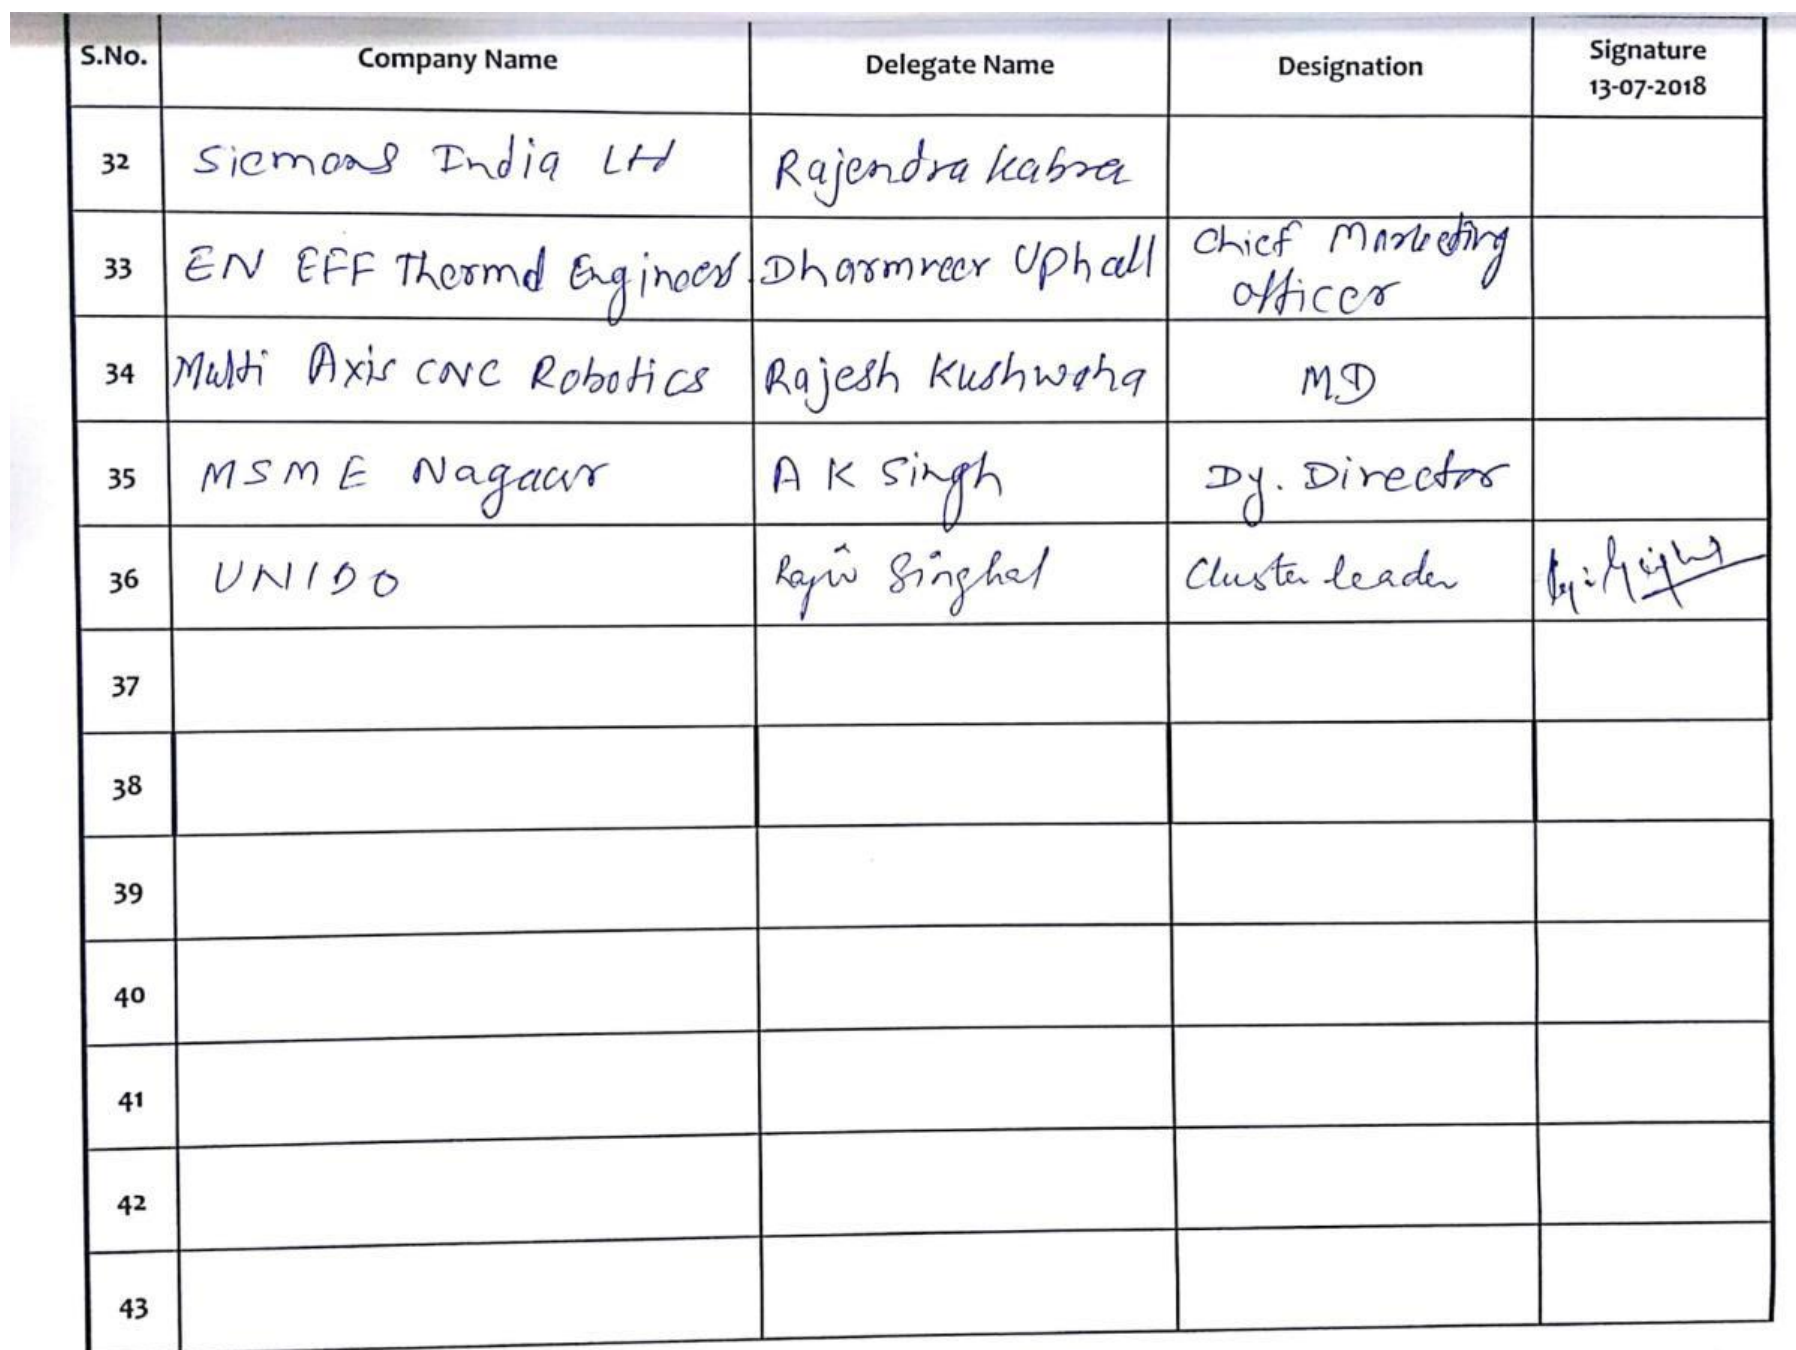 S.No. Company Name Delegate Name Designation Signature
13-07-2018
32 Siemens India Ltd Rajendra Kabra
33 EN EFF Thermal Engineers Dharmveer Uphall Chief Marketing
officer
34 Multi Axis CNC Robotics Rajesh Kushwaha MD
35 MSME Nagaur A K Singh Dy. Director
36 UNIDO Rajiv Singhal Cluster leader
37
38
39
40
41
42
43